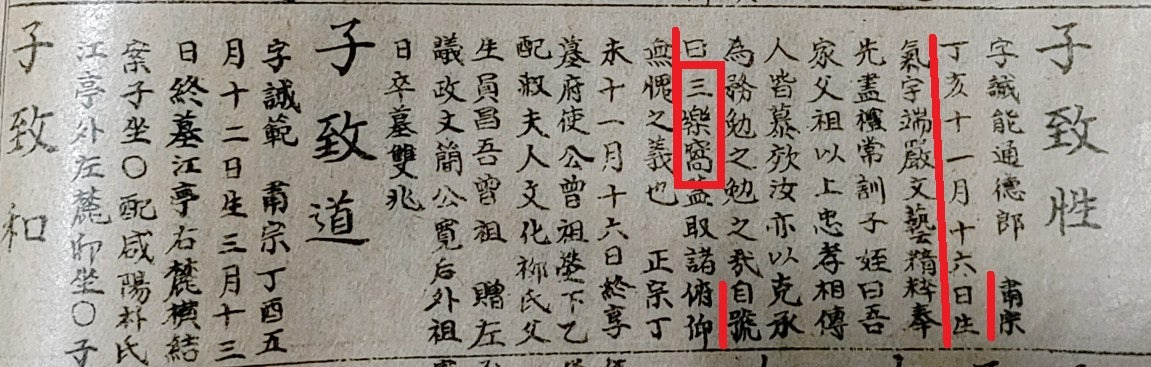 子致性
字識能通德郎 肅宗
丁亥十一月十六日生
氣宇端嚴文藝精粹奉
先盡禮常訓子姪曰吾
家父祖以上忠孝相傳
人皆慕放汝亦以克承
為務勉之勉之哉自號
曰三樂窩蓋取諸俯仰
無愧之義也 正宗丁
未十一月十六日終享
墓府使公曾祖塋下乙
配淑夫人文化柳氏父
生員昌吾曾祖 贈左
議政文簡公寬后外祖
日卒墓雙兆
子致道
字誠範 肅宗丁酉五
月十二日生三月十三
日終墓江亭右麓橫結
案子坐〇配咸陽朴氏
江亭外左麓卯坐〇子
子致和